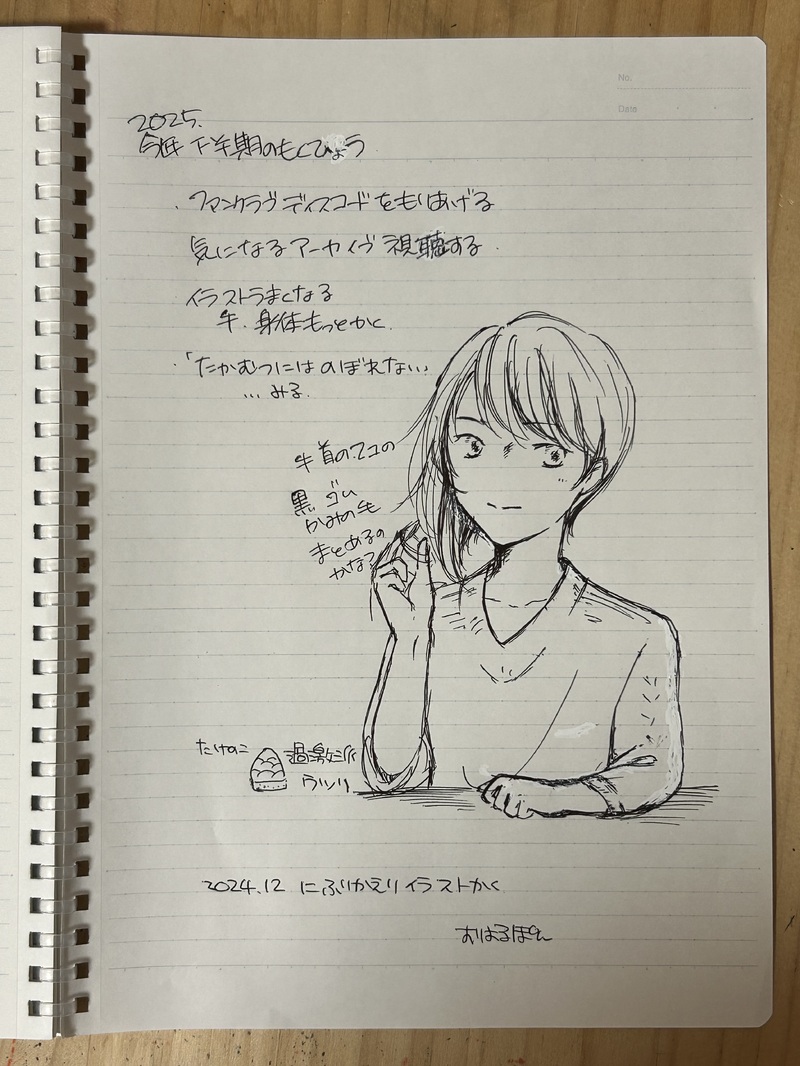 No.
Date
2025.
今年 下半期のもくひょう
・ファンクラヴ ディスコード をもりあげる
気になる アーカイヴ 視聴する.
イラストうまくなる
手. 身体もっとかく.
・「たかむつにはのぼれない...
... みる.
手首のココの
黒. ゴム
かみの毛
まとめるの
かな?
たけのこ
過激派
ウツリ
2024.12 にふりかえりイラストかく
おはるぽん